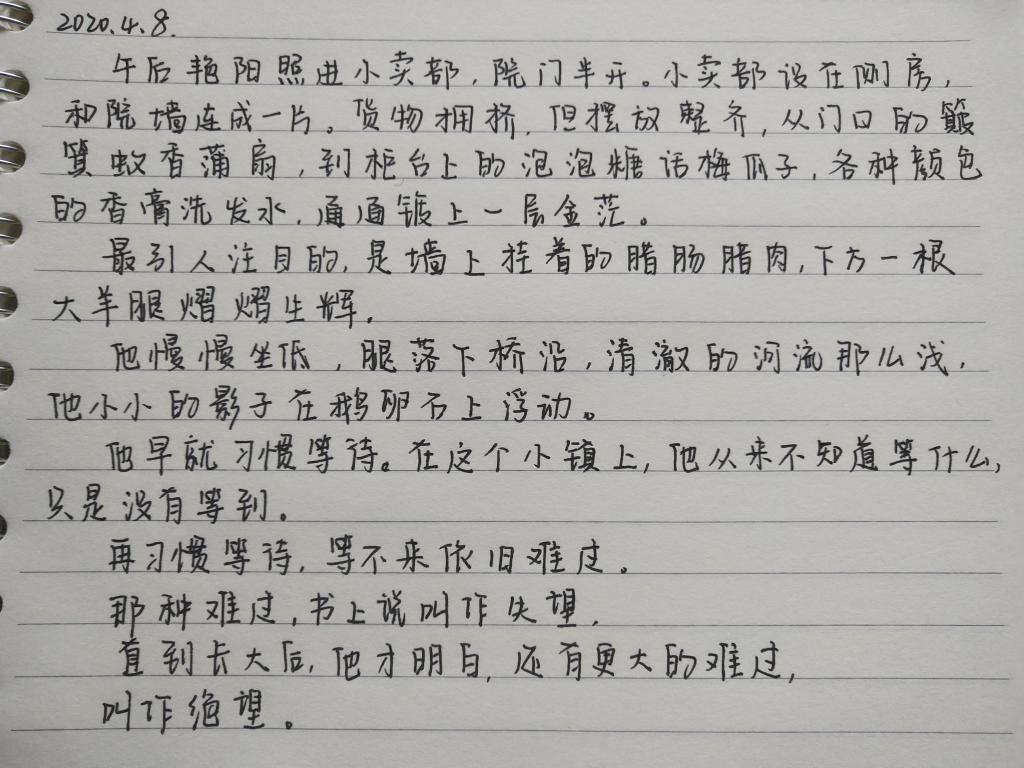 2020.4.8.
午后艳阳照进小卖部，院门半开。小卖部设在侧房，
和院墙连成一片。货物拥挤，但摆放整齐，从门口的簸
箕蚊香蒲扇，到柜台上的泡泡糖话梅瓜子，各种颜色
的香膏洗发水，通通镀上一层金茫。
最引人注目的，是墙上挂着的腊肠腊肉，下方一根
大羊腿熠熠生辉。
他慢慢坐低，腿落下桥沿，清澈的河流那么浅，
他小小的影子在鹅卵石上浮动。
他早就习惯等待。在这个小镇上，他从来不知道等什么，
只是没有等到。
再习惯等待，等不来依旧难过。
那种难过，书上说叫作失望。
直到长大后，他才明白，还有更大的难过，
叫作绝望。